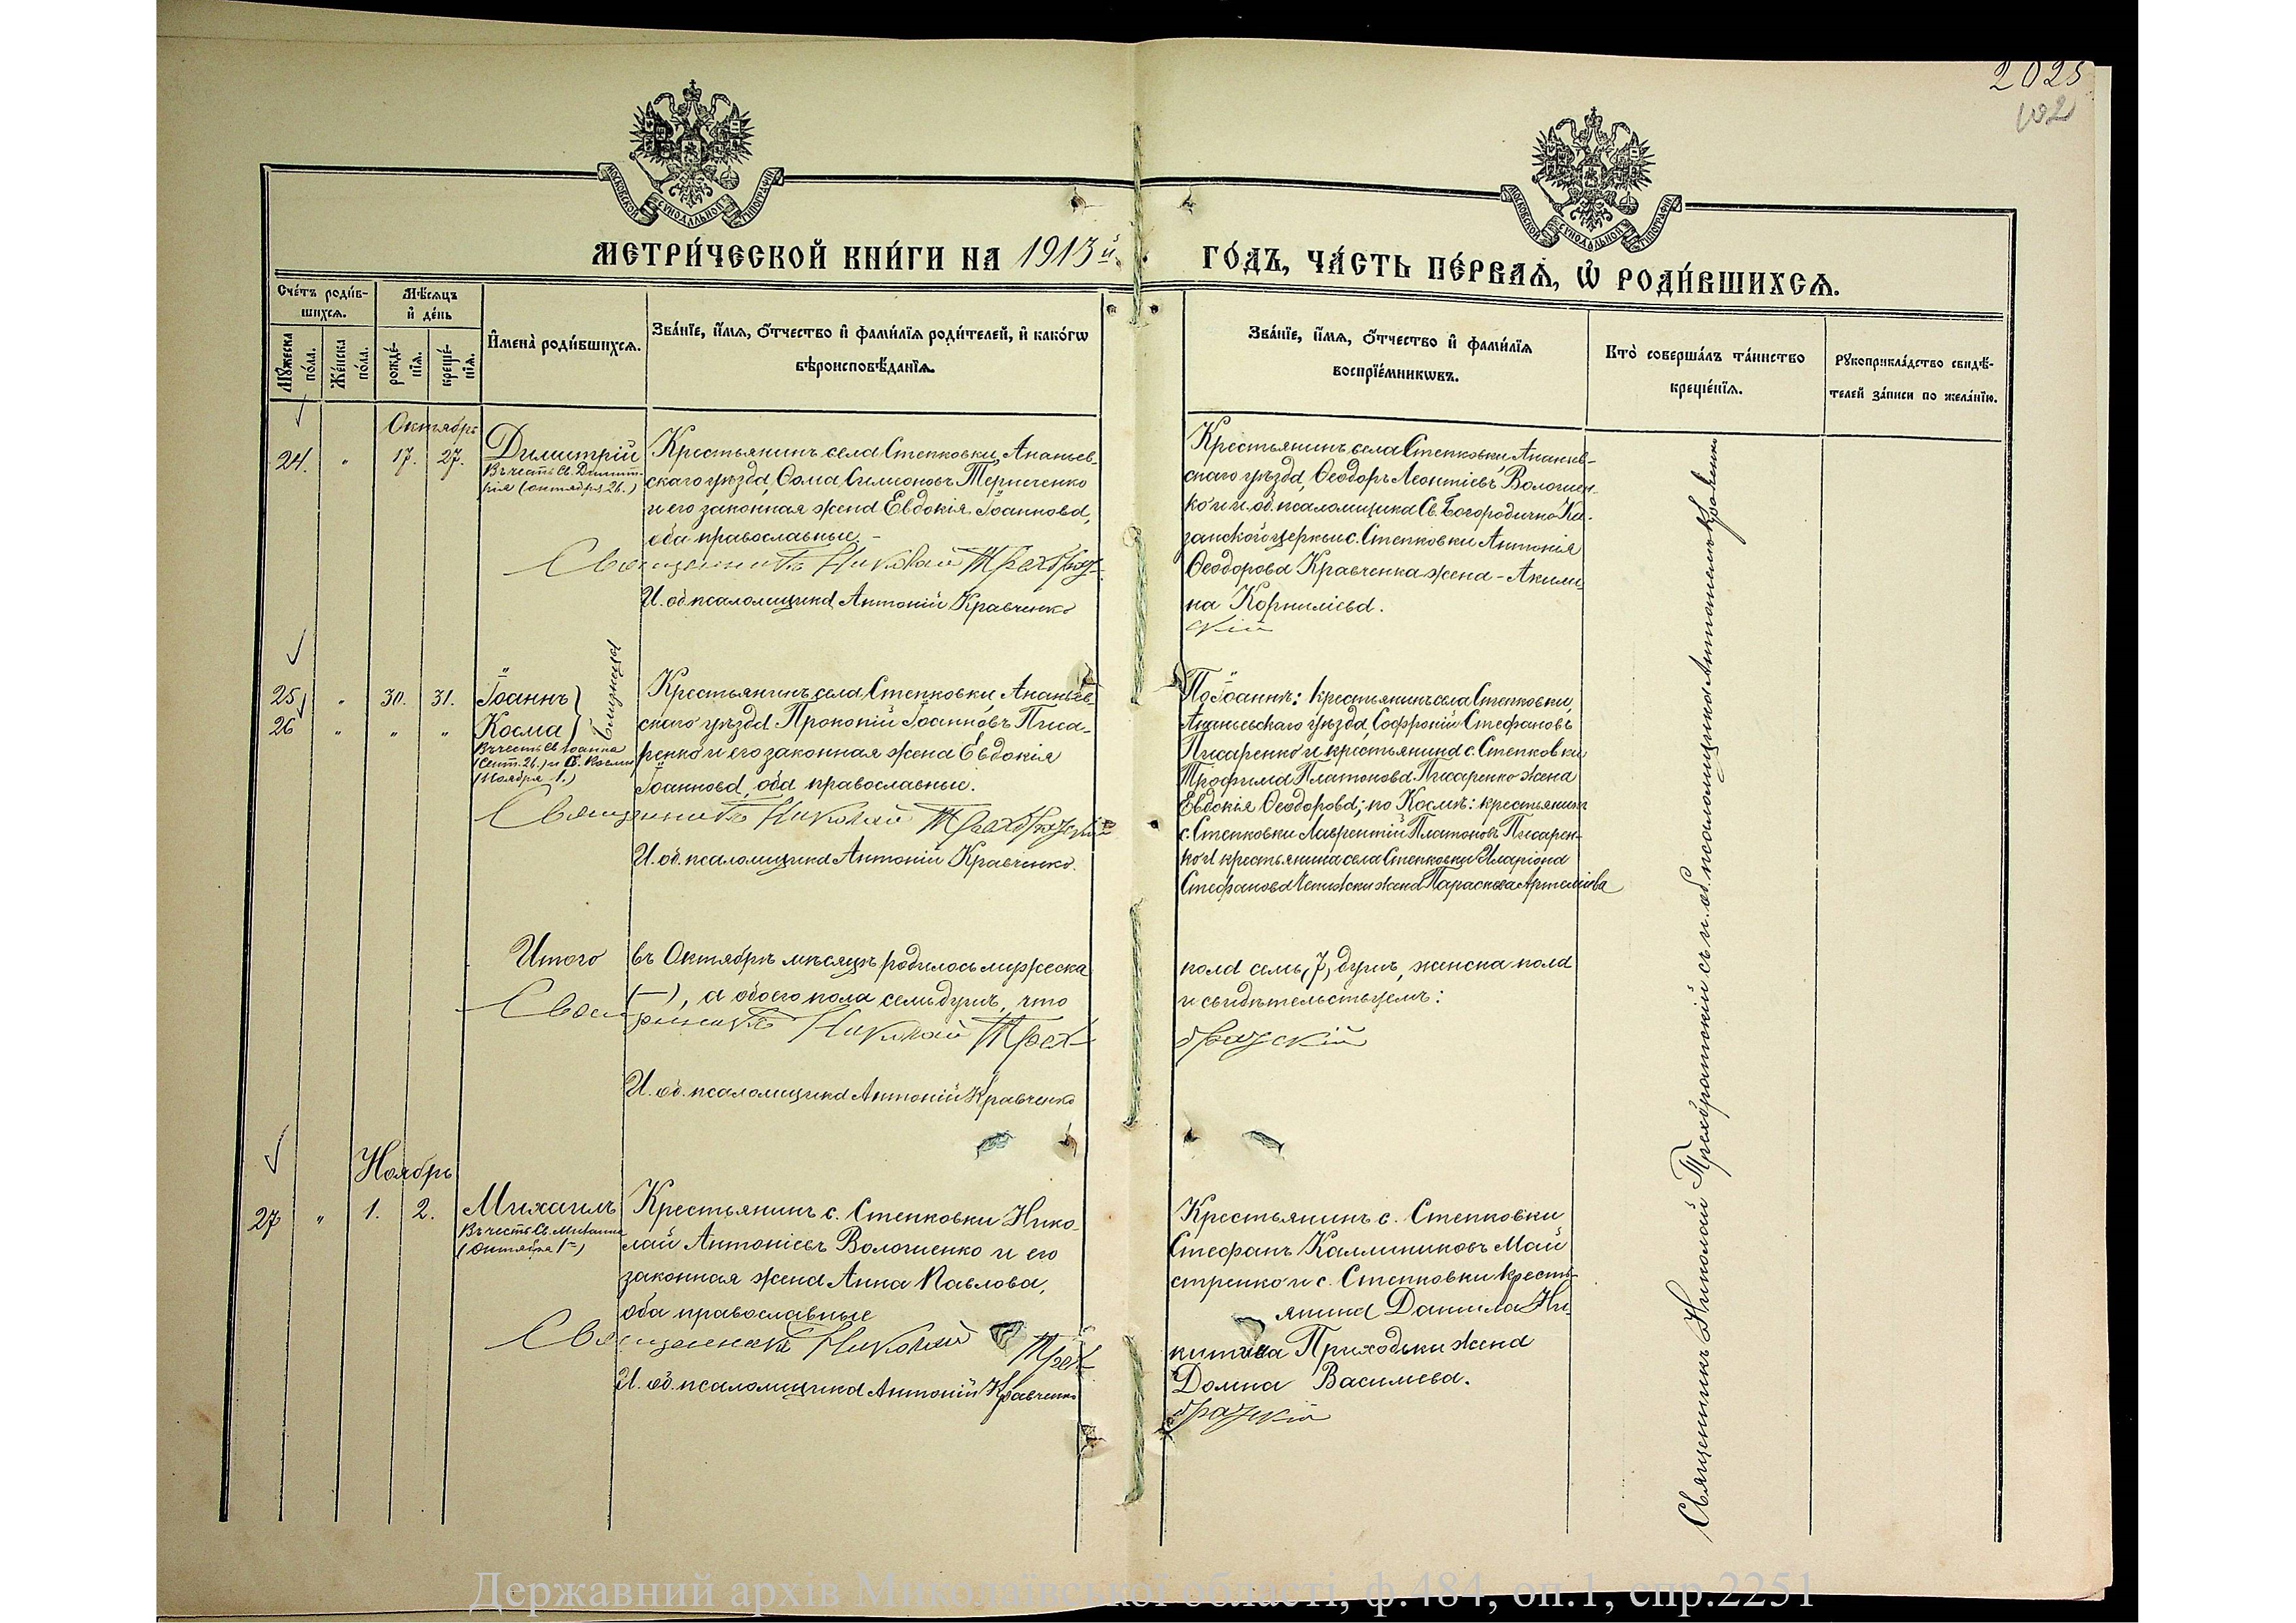 2025
102
МОСКОВСКОЙ СѴНОДАЛЬНОЙ ТИПОГРАФІИ
МОСКОВСКОЙ СѴНОДАЛЬНОЙ ТИПОГРАФІИ
МЕТРИ́ЧЕСКОЙ КНИ́ГИ НА 1913й
ГО́ДЪ, ЧА́СТЬ ПЕ́РВАѦ, Ѡ҆ РОДИ́ВШИХСѦ.
Сче́тъ роди́в-
шихсѧ.
Мѣ́сѧцъ
и҆ де́нь
Мꙋ́жеска
по́ла.
Же́нска
по́ла.
рожде́-
нїѧ.
креще́-
нїѧ.
И҆мена̀ роди́вшихсѧ.
Зва́нїе, и҆́мѧ, ѻ҆́тчество и҆ фами́лїѧ роди́телей, и҆ како́гѡ
вѣроисповѣ́данїѧ.
Зва́нїе, и҆́мѧ, ѻ҆́тчество и҆ фами́лїѧ
воспрїе́мникѡвъ.
Кто̀ соверша́лъ та́инство
креще́нїѧ.
Рꙋкоприкла́дство свидѣ́-
телей за́писи по жела́нїю.
Октябрь
24. " 17. 27.
Димитрій
Въ честь Св. Димит-
рія (октября 26.)
Крестьянинъ села Степковки, Ананьев-
скаго уѣзда, Ѳома Симоновъ Терниченко
и его законная жена Евдокія Іоаннова,
оба православные. -
Священникъ Николай Трехбраз-
И. об. псаломщика Антоній Кравченко
Крестьянинъ села Степковки, Ананьев-
скаго уѣзда, Ѳеодоръ Леонтіевъ Вологиен-
ко и и. об. псаломщика Св. Богородично Ка-
занской церкви с. Степковки Антонія
Ѳеодорова Кравченка жена - Акили-
на Корниліева.
скій
25 " 30. 31.
26 " " "
Іоаннъ
Косма
близнецы
Въ честь Св. Іоанна
(Сент. 26.) и Св. Космы
(Ноября 1.)
Крестьянинъ села Степковки, Ананьев-
скаго уѣзда Прокопій Іоанновъ Писа-
ренко и его законная жена Евдокія
Іоаннова, оба православные.
Священникъ Николай Трехбратскій
И. об. псаломщика Антоній Кравченко.
По Іоаннѣ: крестьянинъ села Степковки,
Ананьевскаго уѣзда, Софроній Стефановъ
Писаренко и крестьянина с. Степковки
Трофима Платонова Писаренко жена
Евдокія Ѳеодорова; по Космѣ: крестьянинъ
с. Степковки Лаврентій Платоновъ Писарен-
ко и крестьянина села Степковки Иларіона
Стефанова жена Параскева Артеміева
Итого въ Октябрѣ мѣсяцѣ родилось мужеска
пола семь (7) душъ, женска пола
(—), а обоего пола семь душъ, что
и свидѣтельствуемъ:
Священникъ Николай Трех-
братскій
И. об. псаломщика Антоній Кравченко
Ноябрь
27 " 1. 2.
Михаилъ
Въ честь Св. Михаила
(Октября 1-)
Крестьянинъ с. Степковки Нико-
лай Антоніевъ Вологиенко и его
законная жена Анна Павлова,
оба православные
Священникъ Николай Трех-
И. об. псаломщика Антоній Кравченко
Крестьянинъ с. Степковки
Стефанъ Каллиниковъ Май
стренко и с. Степковки кресть-
янина Даниила Ни-
китина Приходьки жена
Домна Васильева.
братскій
Священникъ Николай Трехбратскій съ и. об. псаломщика Антоніемъ Кравченко
Державний архів Миколаївської області, ф.484, оп.1, спр.2251